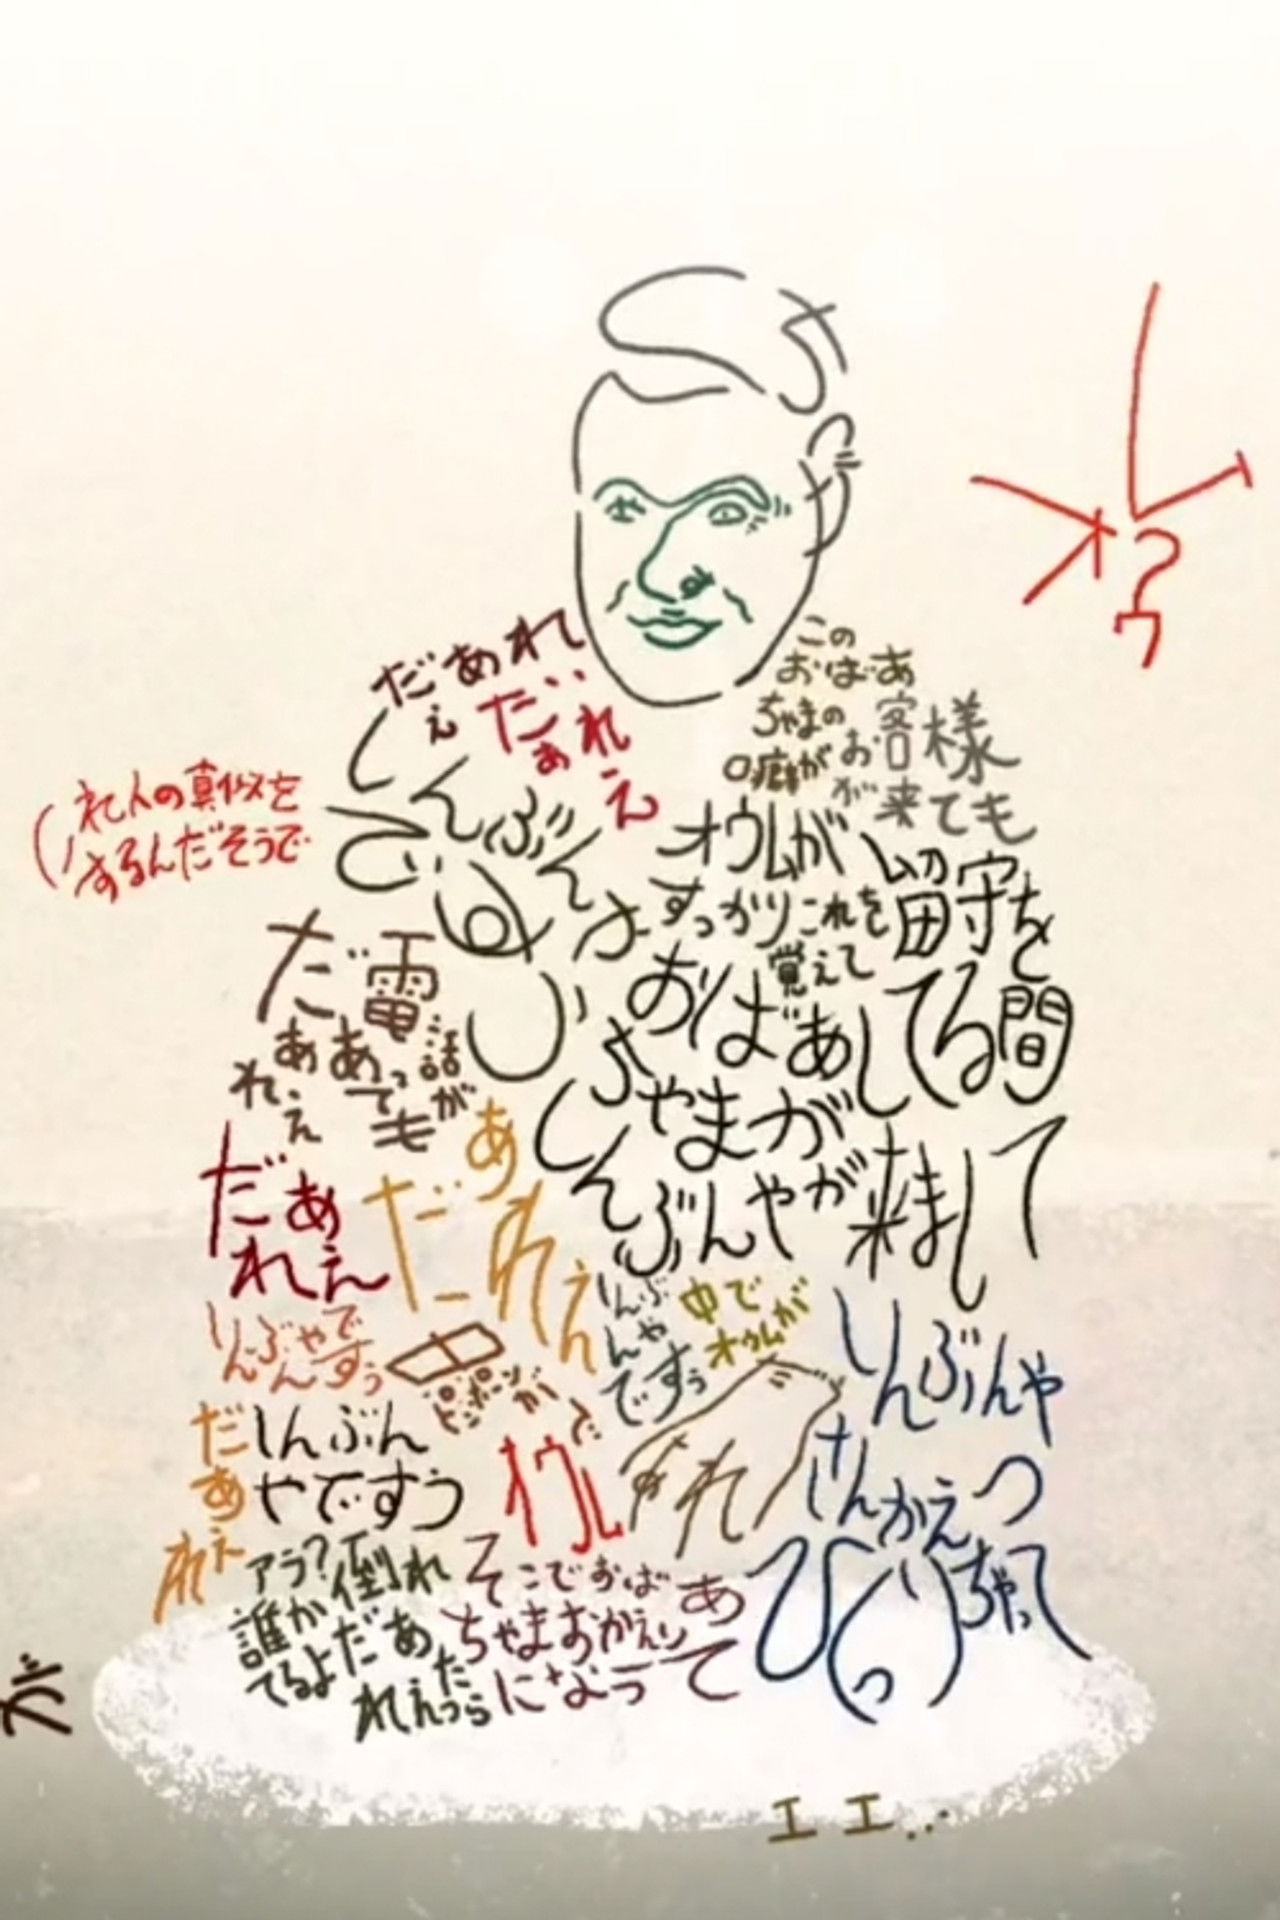 だあれ
ぇ
だぁれ
え
この
おばあ
ちゃまの
口癖が
お客様
が来ても
オウムが
すっかりこれを
覚えて
留守を
してる間
おばあ
ちゃまが
しんぶんやが来まして
しんぶんよ
(れ人の真似を
するんだそうで
電話が
あっても
だ
あ
れぇ
だあ
れえ
あ
だーれえ
しんぶんやで
すぅ
ピンポーンが
しんぶ
んや
ですぅ
中で
オウムが
だ
あ
れぇ
しんぶん
やですう
で
オウム
だれ
しんぶんや
さんかえっ
ちゃって
アラ?倒れ
誰か
てるよだあ
れえったら
そこでおばあ
ちゃまおかえり
になって
びっくり
が
エエ..